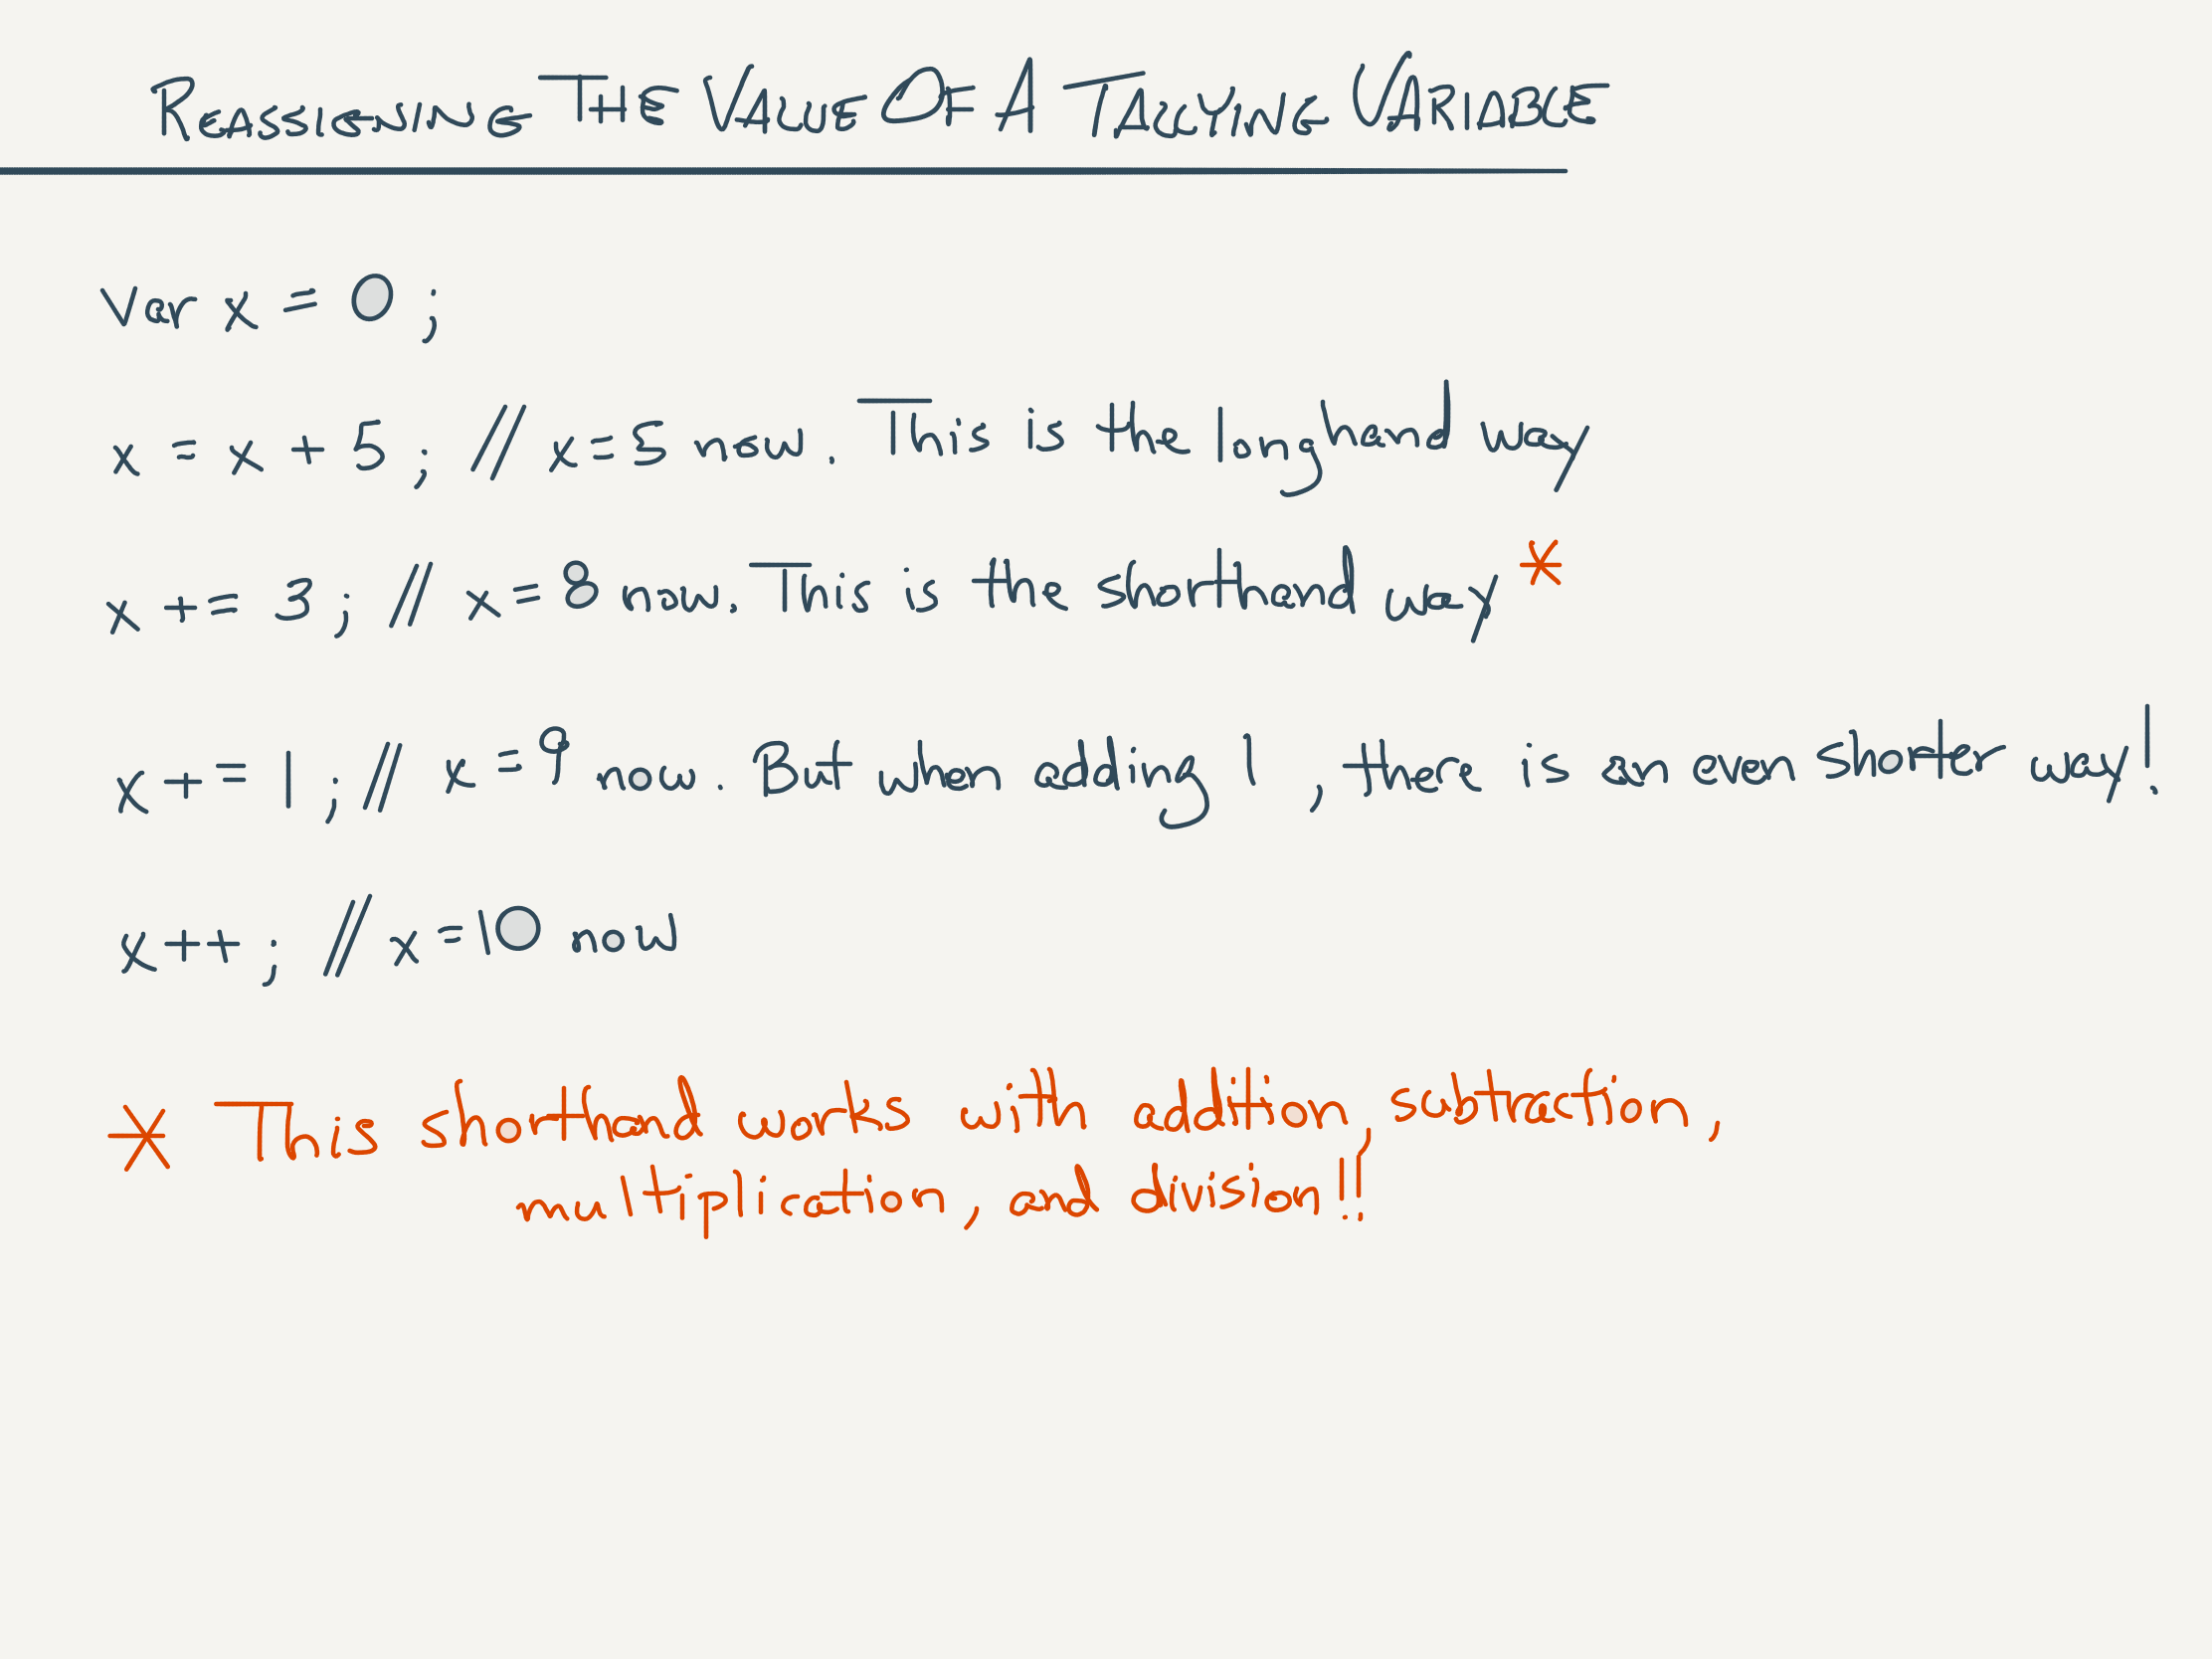 REASSIGNING THE VALUE OF A TALLYING VARIABLE
Var x = 0 ;
x = x + 5 ; // x = 5 now. This is the longhand way
x += 3 ; // x = 8 now. This is the shorthand way *
x += 1 ; // x = 9 now. But when adding 1 , there is an even shorter way!
x++ ; // x = 10 now
* This shorthand works with addition, subtraction,
multiplication, and division!!